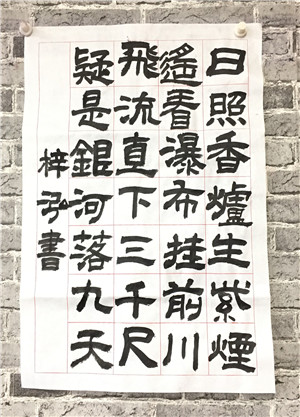 日照香爐生紫煙
遙看瀑布挂前川
飛流直下三千尺
疑是銀河落九天
梓泓書